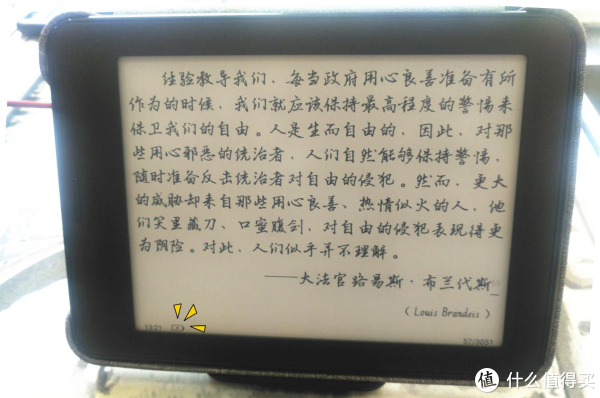 经验教导我们，每当政府用心良善准备有所
作为的时候，我们就应该保持最高程度的警惕来
保卫我们的自由。人是生而自由的，因此，对那
些用心邪恶的统治者，人们自然能够保持警惕，
随时准备反击统治者对自由的侵犯。然而，更大
的威胁却来自那些用心良善、热情似火的人，他
们笑里藏刀、口蜜腹剑，对自由的侵犯表现得更
为阴险。对此，人们似乎并不理解。
——大法官路易斯·布兰代斯
（Louis Brandeis）
13:21
57/3051
值 什么值得买